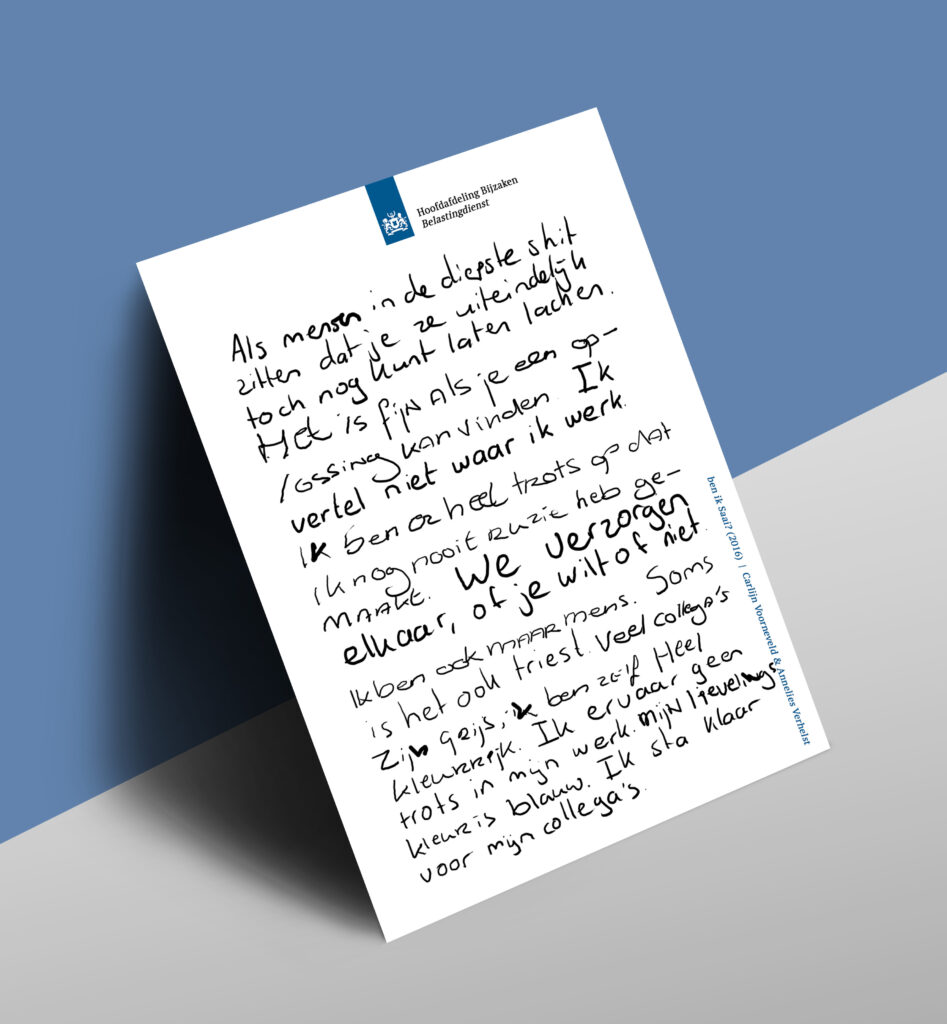 Hoofdafdeling Bijzaken
Belastingdienst
Als mensen in de diepste shit
zitten dat je ze uiteindelijk
toch nog kunt laten lachen.
Het is fijN Als je een op-
lossing kan vinden. Ik
vertel niet waar ik werk.
Ik ben er heel trots op dat
ik nog nooit ruzie heb ge-
MAAkt. We verzorgen
elkaar, of je wilt of niet.
Ik ben ook MAAR mens. Soms
is het ook triest. Veel collega's
zijn grijs, ik ben zelf Heel
kleurrijk. Ik ervaar geen
trots in mijn werk. Mijn lievelings
kleur is blauw. Ik sta klaar
voor mijn collega's.
ben ik Saai? (2016) | Carlijn Voorneveld & Annelies Verhelst